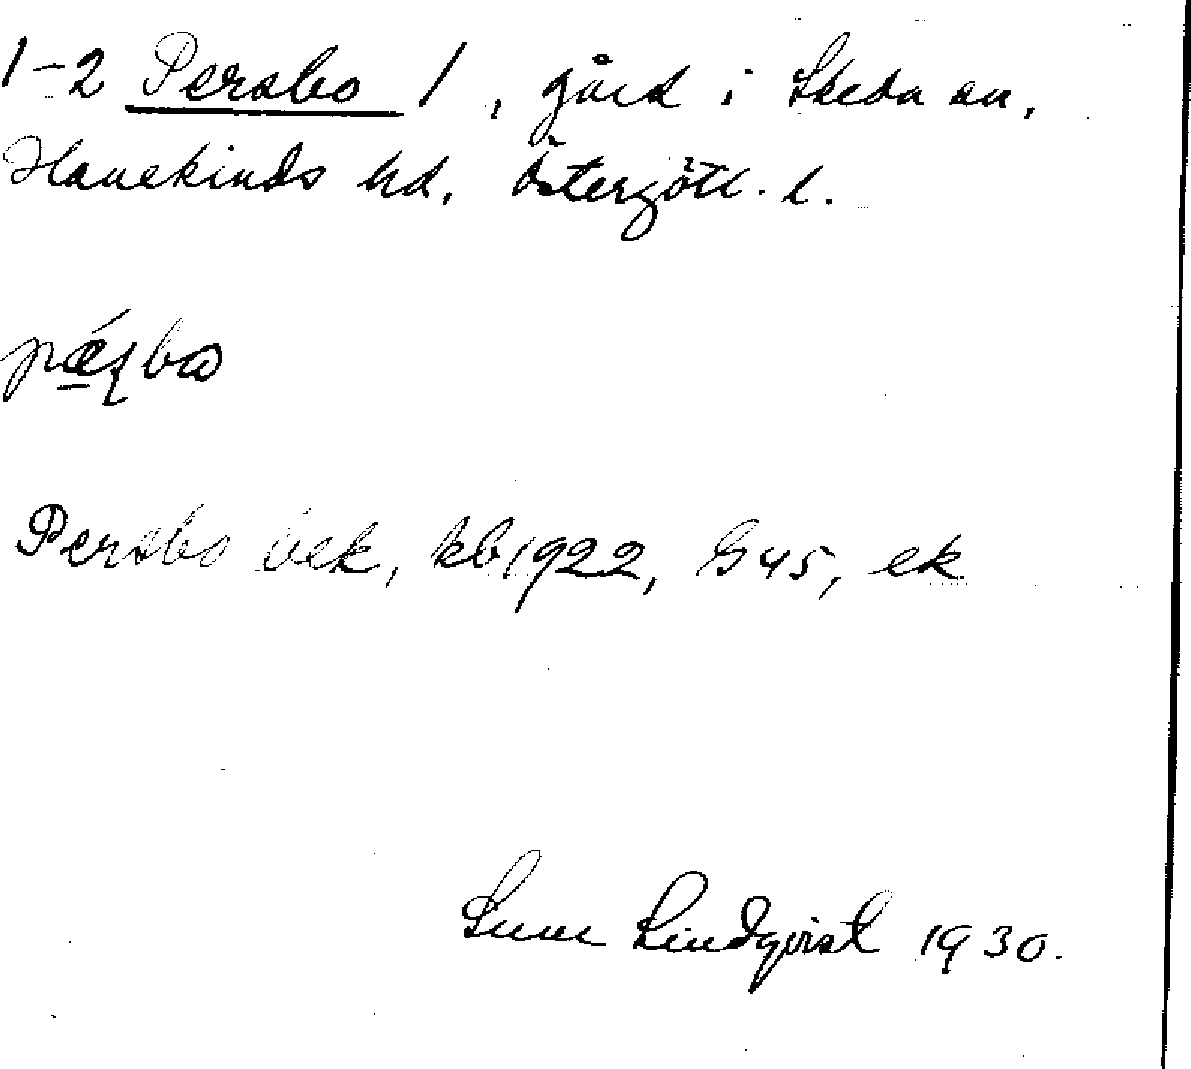 1-2 Persbo 1, gård i Skeda sn,
Hanekinds hd, Östergötl. l.
Persbo bek, kb 1922, G 45, ek
Sune Lindqvist 1930.